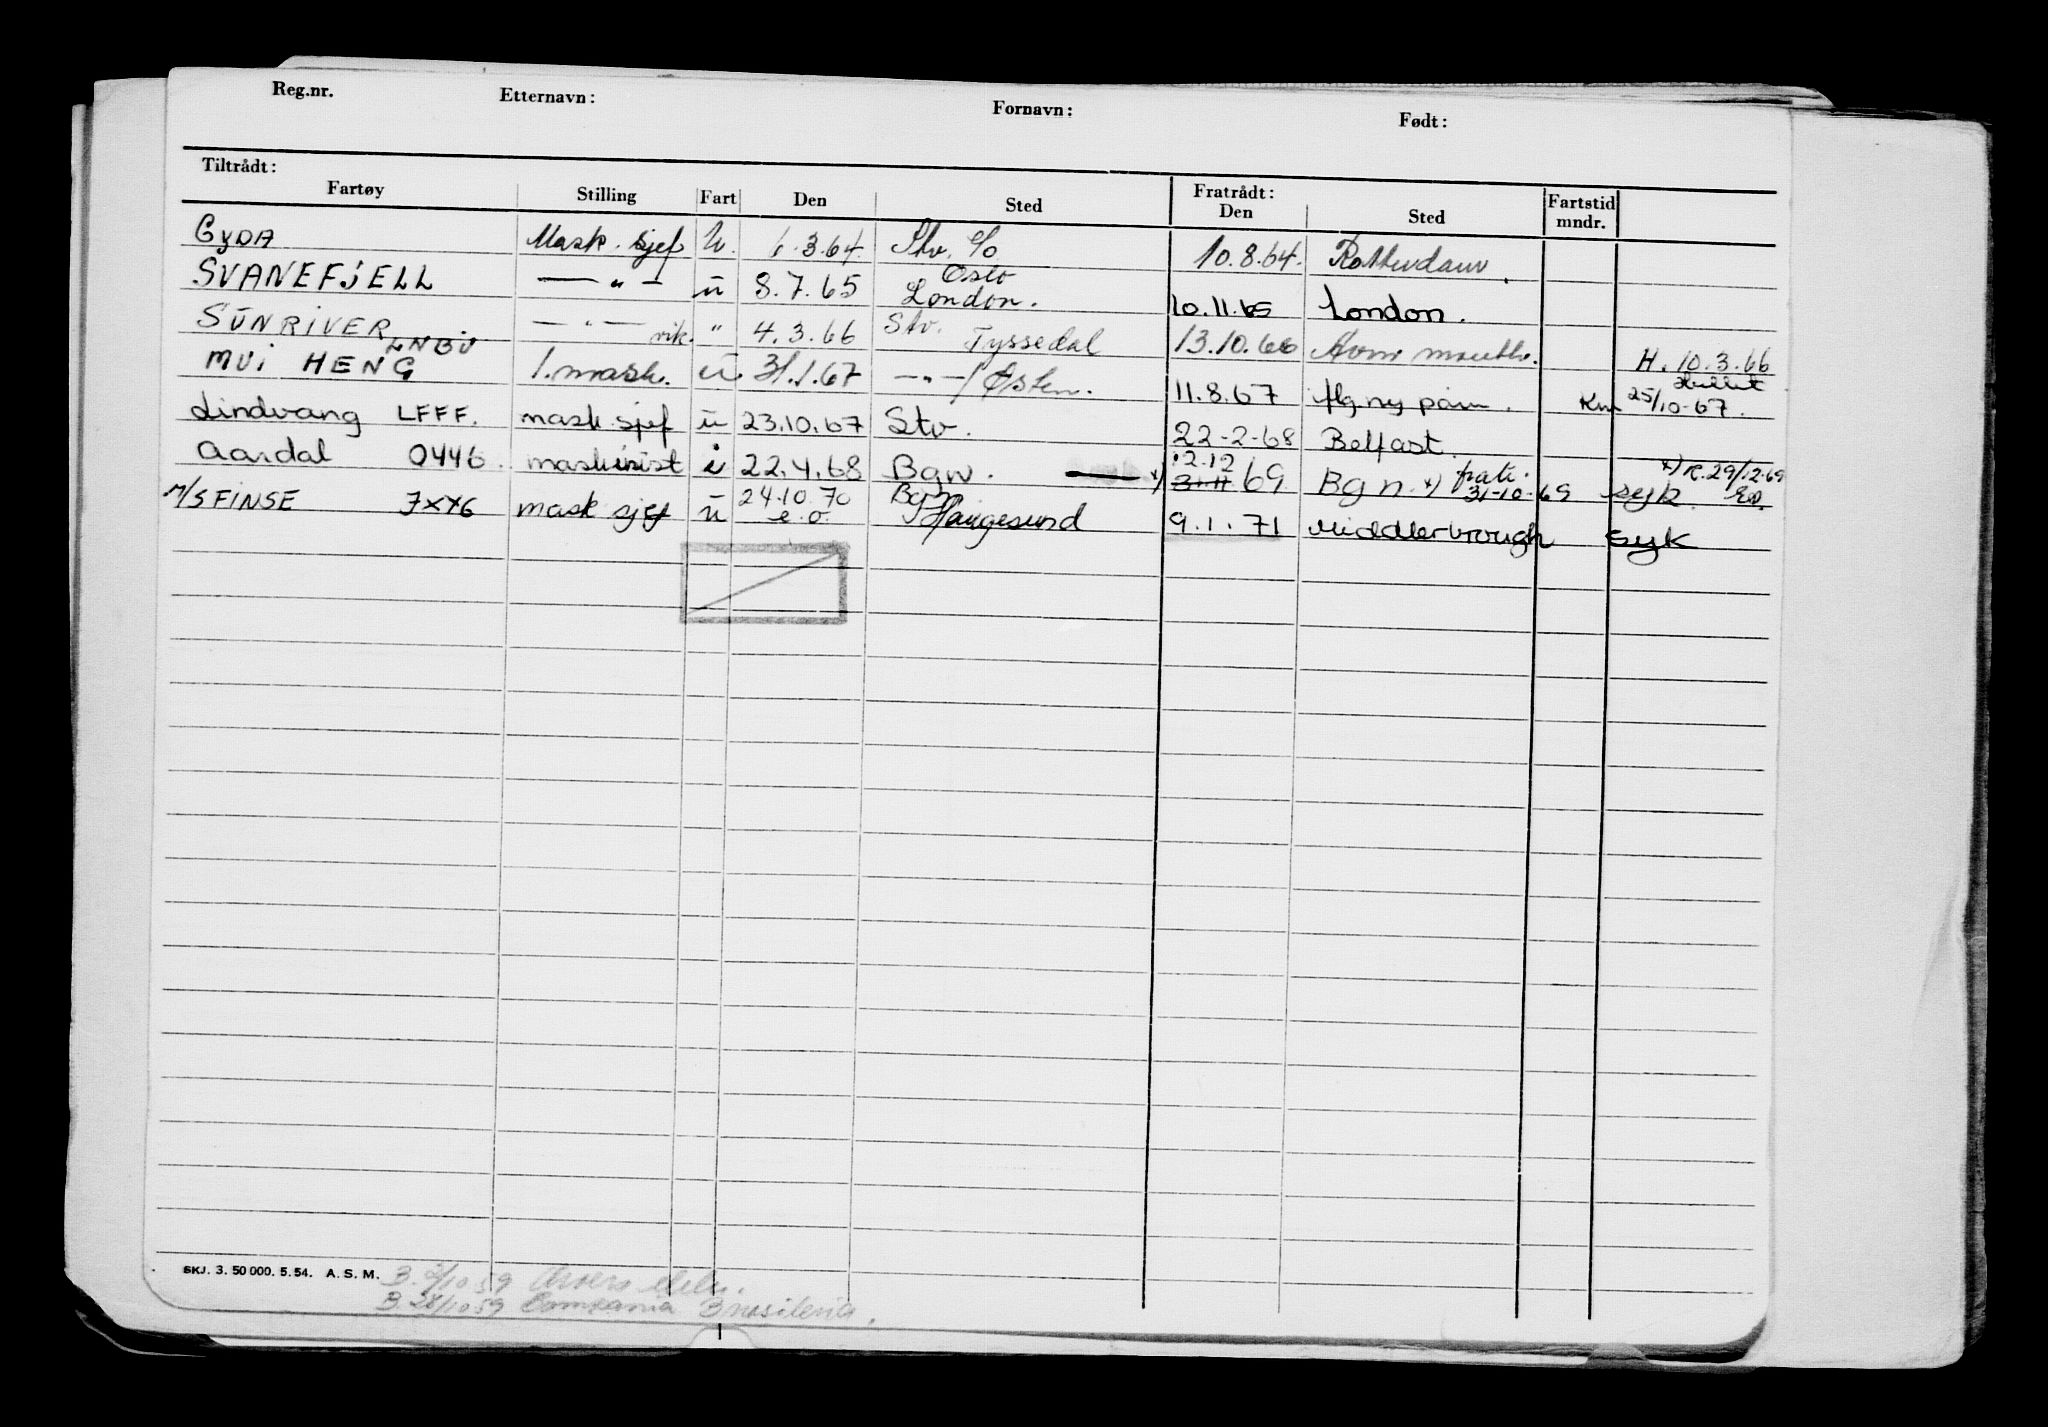 Reg.nr. Etternavn: Fornavn: Født:
Tiltrådt: Fratrådt:
Fartøy Stilling Fart Den Sted Den Sted Fartstid mndr.
GYDA Mask. sjef u. 6.3.64. Stv. c/o Oslo 10.8.64. Rotterdam.
SVANEFJELL — " — ü 8.7.65 London. 10.11.65 London.
SUNRIVER LNBV — " — vik. " 4.3.66 Stv. Tyssedal 13.10.66 H. 10.3.66
MUI HENG 1. mask. ü 31.1.67 — " — / Østen. 11.8.67 25/10-67.
Lindvang LFFF. mask sjef ü 23.10.67 Stv. 22-2-68 Belfast.
Aardal 0446. maskinist i 22.4.68 Bgn. x) 12.12 31.11 69 Bgn. x) 31-10-69 syk x) 29/12-69
M/S FINSE JXXG mask sjef ü 24.10.70 e.o. Bgn Haugesund 9.1.71 Middlerbrough syk
SKJ. 3. 50 000. 5. 54. A. S. M. B. 2/10 59
B. 28/10 59 Compania Brasileria.